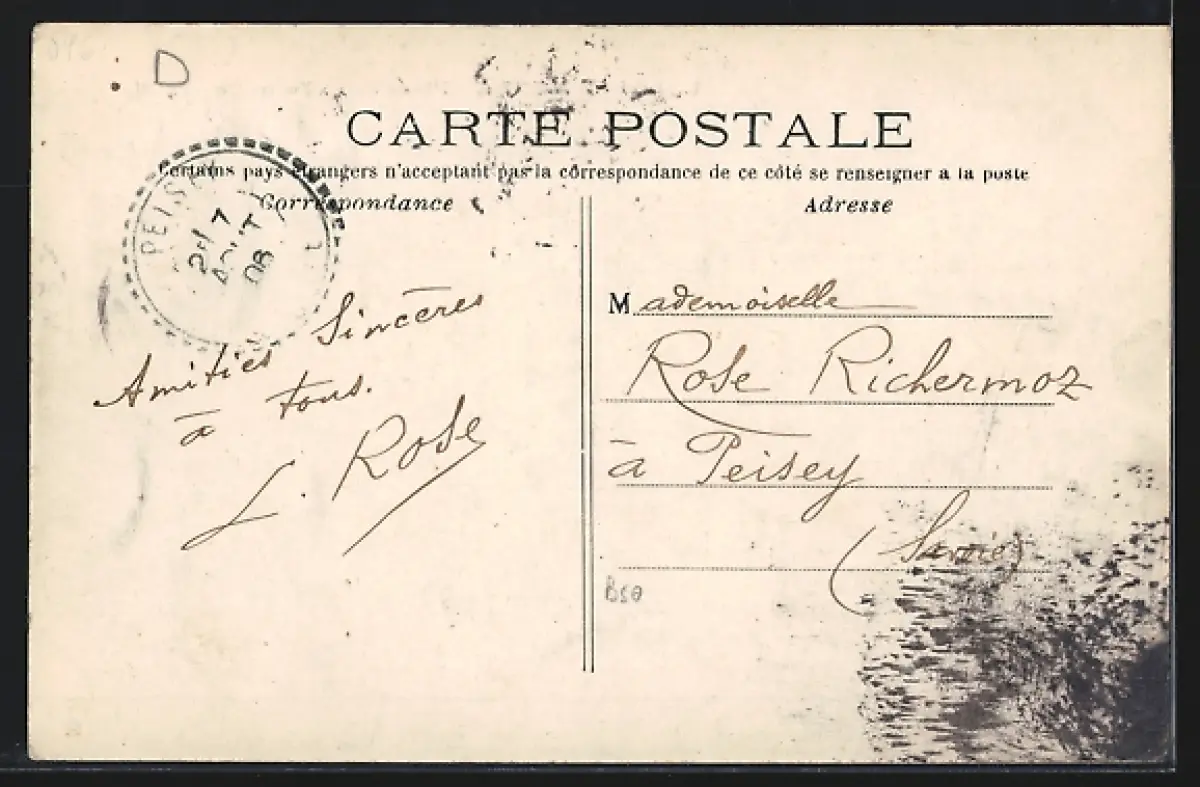 D
CARTE POSTALE
Certains pays étrangers n'acceptant pas la correspondance de ce côté se renseigner à la poste
Correspondance
Adresse
PEISE
7
AOUT
08
Amitiés Sincères
à tous.
L. Rose
Mademoiselle
Rose Richermoz
à Peisey
(Savoie)
BS0